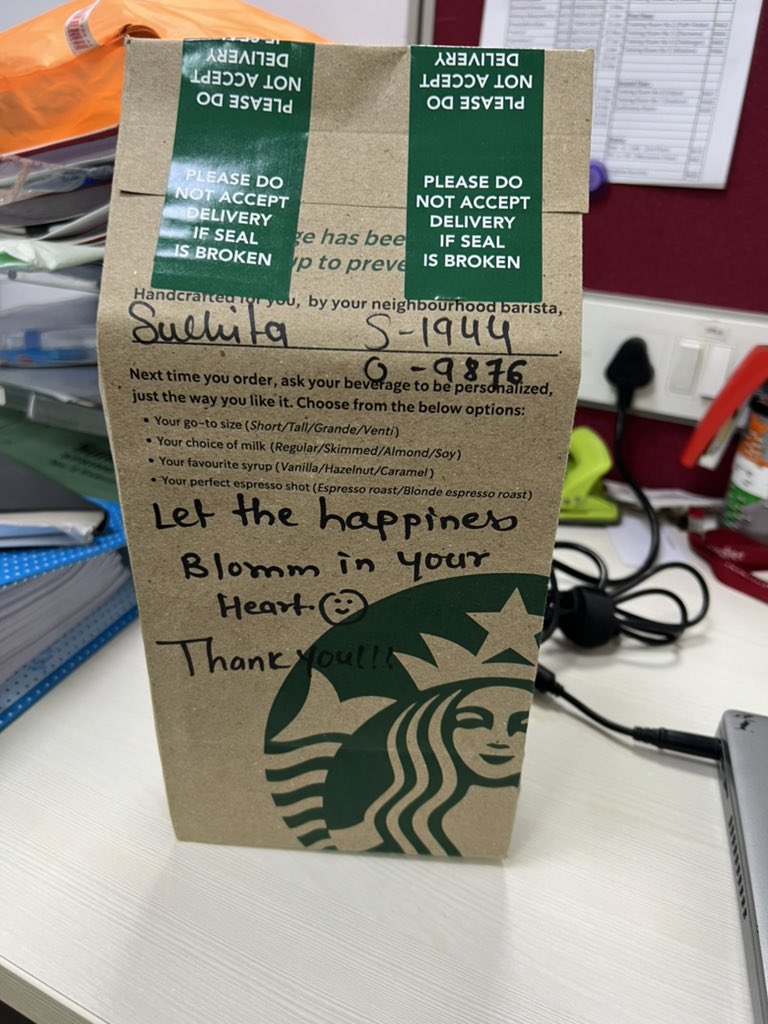 IF SEAL
DELIVERY
NOT ACCEPT
PLEASE DO
PLEASE DO
NOT ACCEPT
DELIVERY
IF SEAL
IS BROKEN
DELIVERY
NOT ACCEPT
PLEASE DO
PLEASE DO
NOT ACCEPT
DELIVERY
IF SEAL
IS BROKEN
ge has bee
up to preve
Handcrafted for you, by your neighbourhood barista,
Suchita S-1944
O-9876
Next time you order, ask your beverage to be personalized,
just the way you like it. Choose from the below options:
• Your go-to size (Short/Tall/Grande/Venti)
• Your choice of milk (Regular/Skimmed/Almond/Soy)
• Your favourite syrup (Vanilla/Hazelnut/Caramel)
• Your perfect espresso shot (Espresso roast/Blonde espresso roast)
Let the happines
Blomm in your
Heart
Thank you!!!